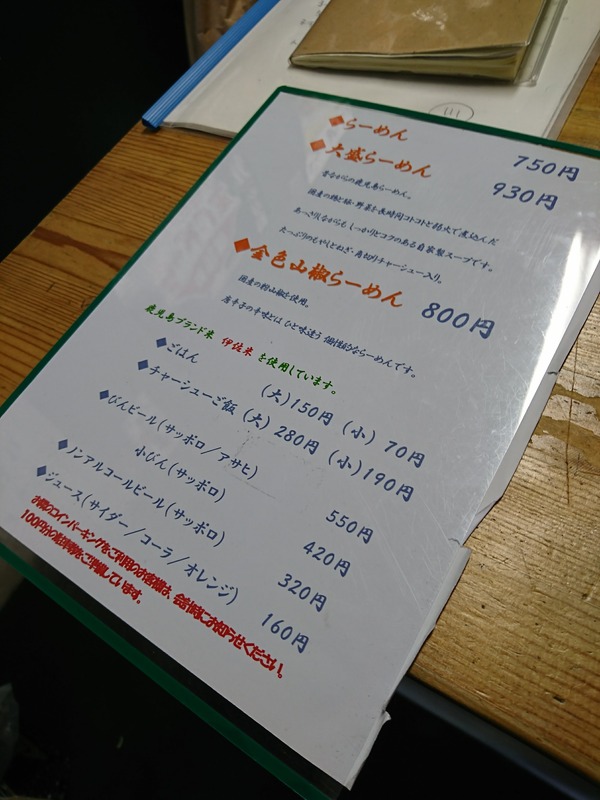 ◆らーめん 750円
◆大盛らーめん 930円
昔ながらの鹿児島らーめん。
国産の鶏と豚・野菜を長時間コトコトと弱火で煮込んだ
あっさりしながらも しっかりとコクのある自家製スープです。
たっぷりのもやしとねぎ・角切りチャーシュー入り。
◆金色山椒らーめん 800円
国産の粉山椒を使用。
唐辛子の辛味とは ひと味違う 個性的ならーめんです。
鹿児島ブランド米 伊佐米 を使用しています。
◆ごはん (大)150円 (小) 70円
◆チャーシューご飯 (大) 280円 (小)190円
◆びんビール(サッポロ/アサヒ) 550円
小びん(サッポロ) 420円
◆ノンアルコールビール(サッポロ) 320円
◆ジュース(サイダー/コーラ/オレンジ) 160円
お隣のコインパーキングをご利用のお客様は、会計時にお知らせください。
100円分の駐車券をご準備しています。